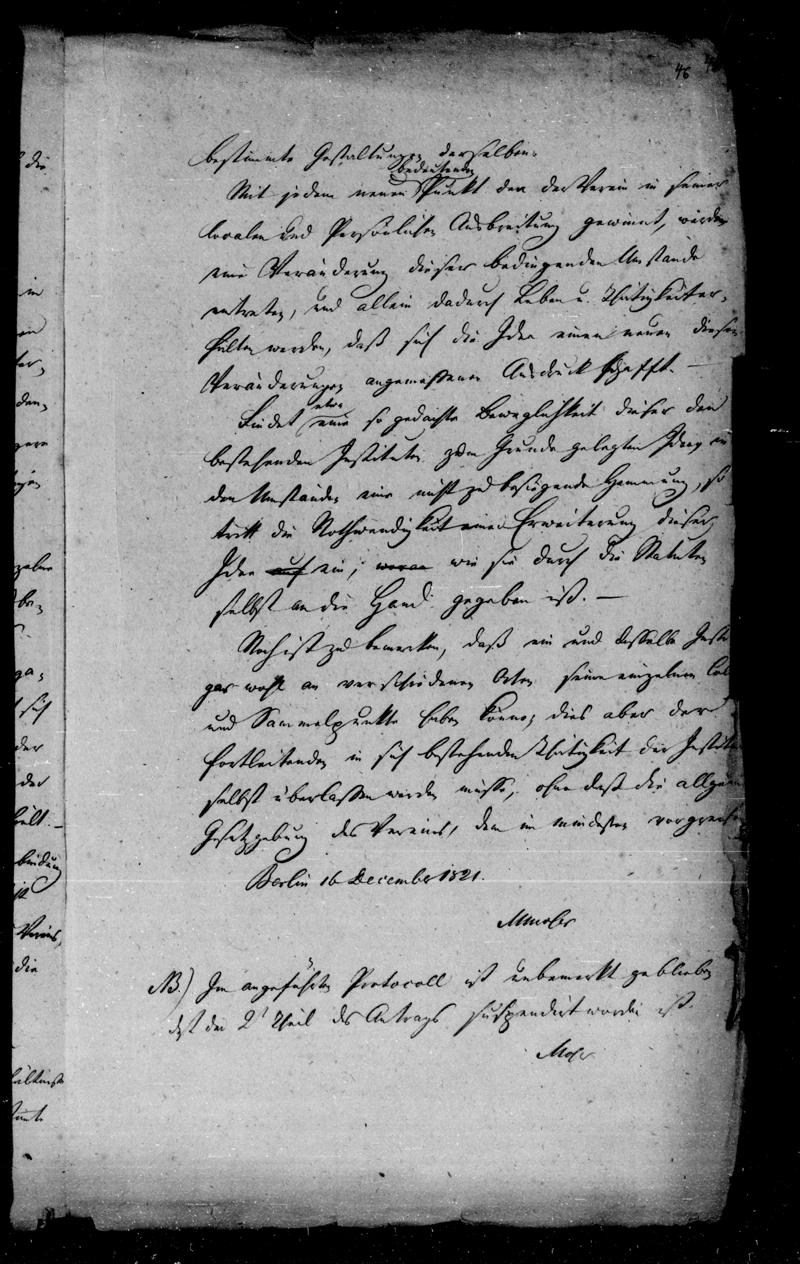 46
bestimmte Gestaltungen derselben.
bedeutenden
Mit jedem neuen Punkt den der Verein in seiner
localen und Persönlichen Ausbreitung gewinnt, werden
eine Veränderung dieser bedingenden Umstände
eintreten, und allein dadurch Leben u. Thätigkeit er-
halten werden, daß sich die Idee einen neuen diesen
Veränderungen angemessenen Ausdruck schafft. —
etwa
Findet eine so gedachte Beweglichkeit dieser den
bestehenden Instituten zum Grunde gelegten Ideen in
den Umständen eine nicht zu besiegende Hemmung, so
tritt die Nothwendigkeit einer Erweiterung dieser
Idee auf ein, woran wie sie durch die Statuten
selbst an die Hand gegeben ist. —
Noch ist zu bemerken, daß ein und dasselbe Insti
gar wohl an verschiedenen Orten seine einzelnen
und Sammelpunkte haben könne, dies aber der
fortleitenden in sich bestehenden Thätigkeit der Institute
selbst überlassen werden müsse, ohne daß die allgem
Gesetzgebung des Vereins, dem im mindesten vorgreife
Berlin 16 December 1821.
MMoser
NB.) Im angeführten Protocoll ist unbemerkt geblieben
daß der 2t Theil des Antrags suspendirt worden ist.
Moser
die
in
den,
ber,
sich
der
der
bindung
Verein,
die